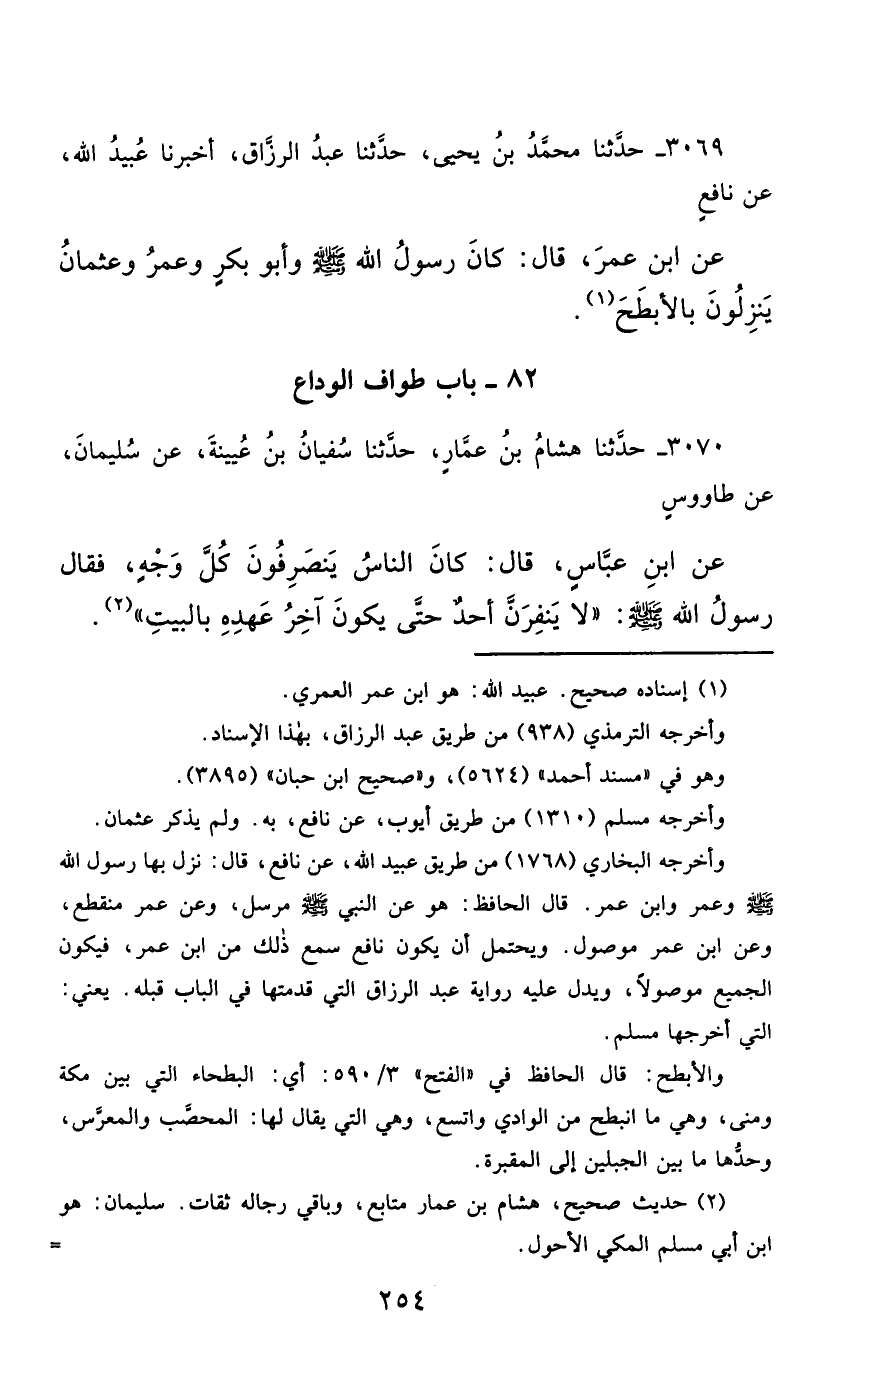 ٣٠٦٩ـ حدَّثنا محمَّدُ بنُ يحيى، حدَّثنا عبدُ الرزَّاق، أخبرنا عُبيدُ الله،
عن نافعٍ
عن ابن عمرَ، قال: كانَ رسولُ الله ﷺ وأبو بكرٍ وعمرُ وعثمانُ
يَنزِلُونَ بالأبطَحَ(١).
٨٢ ـ باب طواف الوداع
٣٠٧٠ـ حدَّثنا هشامُ بنُ عمَّارٍ، حدَّثنا سُفيانُ بنُ عُيينةَ، عن سُليمانَ،
عن طاووسٍ
عن ابنِ عبَّاسٍ، قال: كانَ الناسُ يَنصَرِفُونَ كُلَّ وَجْهٍ، فقال
رسولُ الله ﷺ: «لا يَنْفِرَنَّ أحدٌ حتَّى يكونَ آخِرُ عَهدِهِ بالبيتِ»(٢).
(١) إسناده صحيح. عبيد الله: هو ابن عمر العمري.
وأخرجه الترمذي (٩٣٨) من طريق عبد الرزاق، بهٰذا الإسناد.
وهو في «مسند أحمد» (٥٦٢٤)، و«صحيح ابن حبان» (٣٨٩٥).
وأخرجه مسلم (١٣١٠) من طريق أيوب، عن نافع، به. ولم يذكر عثمان.
وأخرجه البخاري (١٧٦٨) من طريق عبيد الله، عن نافع، قال: نزل بها رسول الله
ﷺ وعمر وابن عمر. قال الحافظ: هو عن النبي ﷺ مرسل، وعن عمر منقطع،
وعن ابن عمر موصول. ويحتمل أن يكون نافع سمع ذٰلك من ابن عمر، فيكون
الجميع موصولاً، ويدل عليه رواية عبد الرزاق التي قدمتها في الباب قبله. يعني:
التي أخرجها مسلم.
والأبطح: قال الحافظ في «الفتح» ٣/ ٥٩٠: أي: البطحاء التي بين مكة
ومنى، وهي ما انبطح من الوادي واتسع، وهي التي يقال لها: المحصَّب والمعرَّس،
وحدُّها ما بين الجبلين إلى المقبرة.
(٢) حديث صحيح، هشام بن عمار متابع، وباقي رجاله ثقات. سليمان: هو
ابن أبي مسلم المكي الأحول. =
٢٥٤